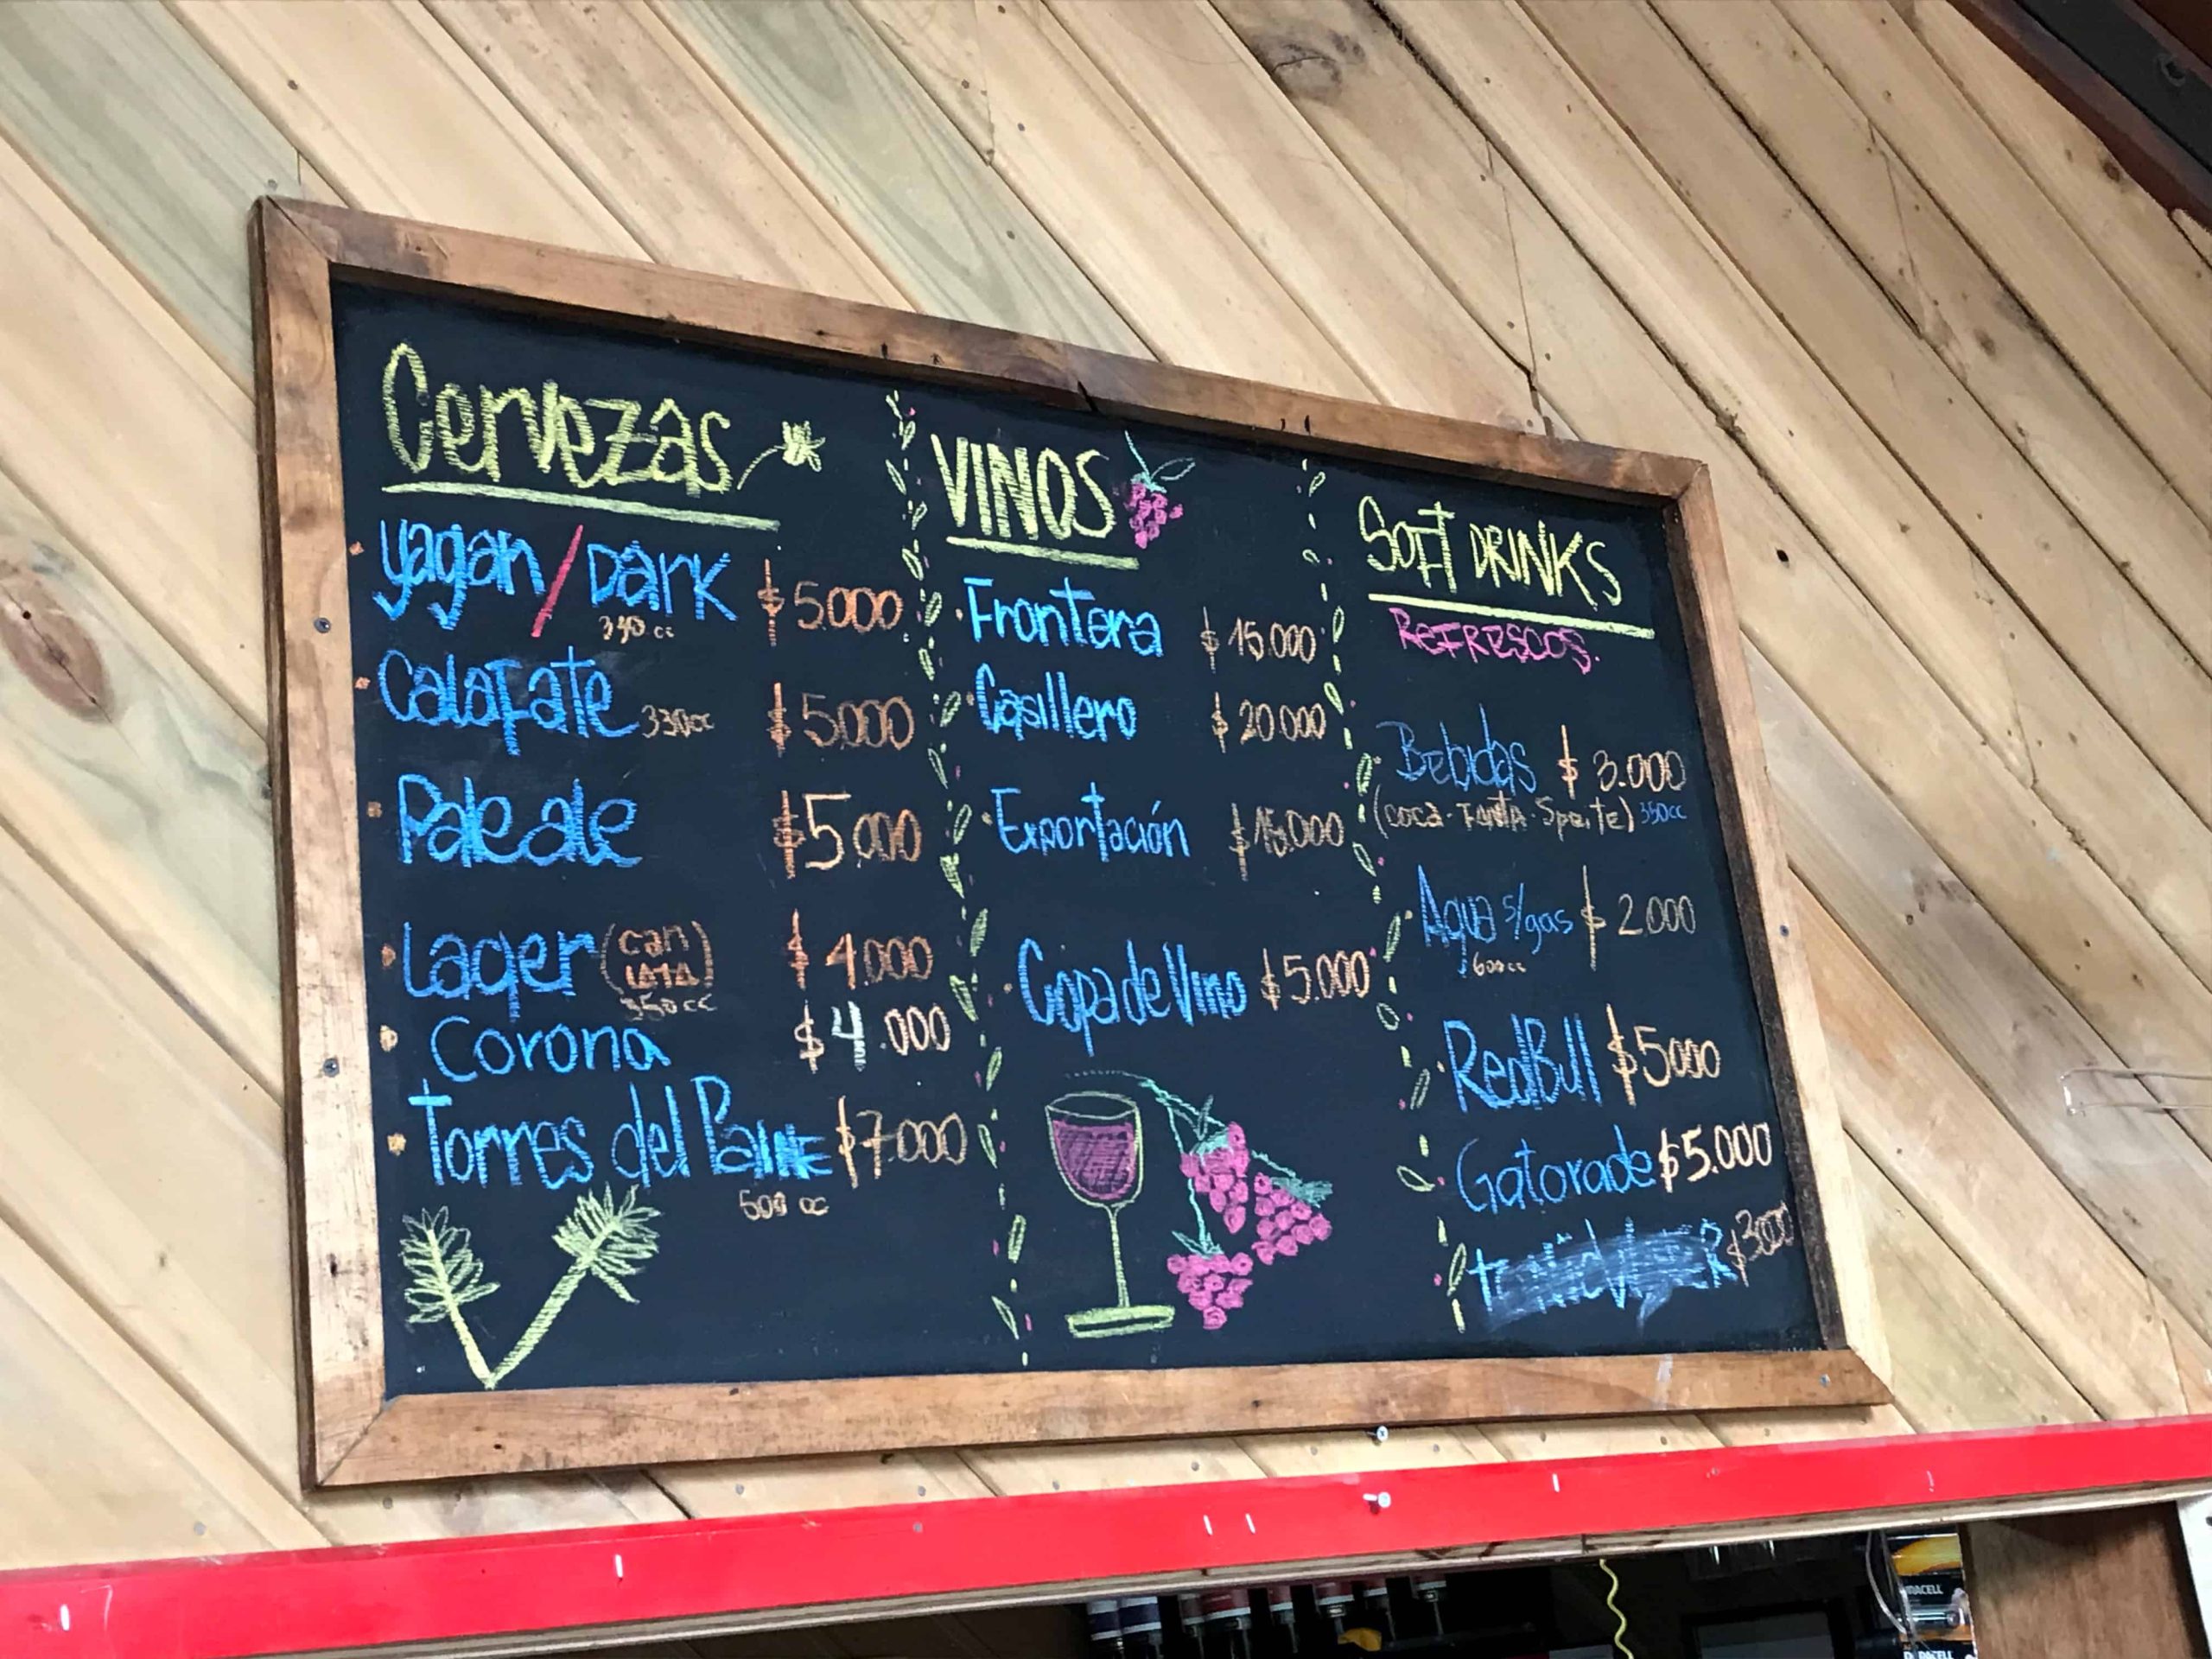 Cervezas
yagan/Dark $5.000
330 cc
Calafate 330cc $5.000
Pale ale $5.000
Lager (can LATA) $4.000
350 cc
Corona $4.000
Torres del Paine $7.000
500 cc
VINOS
Frontera $15.000
Casillero $20.000
Exportación $15.000
Copa de Vino $5.000
SOFT DRINKS
REFRESCOS.
Bebidas $3.000
(coca-FANTA-Speite) 350cc
Agua s/gas $2.000
600cc
RedBull $5000
Gatorade $5.000
$3000
DURACELL